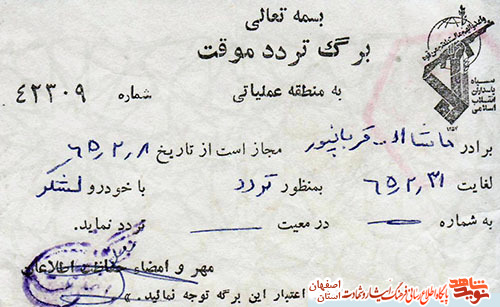 بسمه تعالی
برگ تردد موقت
به منطقه عملیاتی شماره ۴۲۳۰۹
سپاه
پاسداران
انقلاب
اسلامی
برادر ماشااله قربانپور مجاز است از تاریخ ۶۵٫۲٫۸
لغایت ۶۵٫۲٫۳۱ بمنظور تردد با خودرو لشگر
به شماره — در معیت — تردد نماید.
مهر و امضاء حفاظت اطلاعات
اعتبار این برگه توجه نمائید.
پایگاه اطلاع رسانی فرهنگ ایثار و شهادت
استان اصفهان